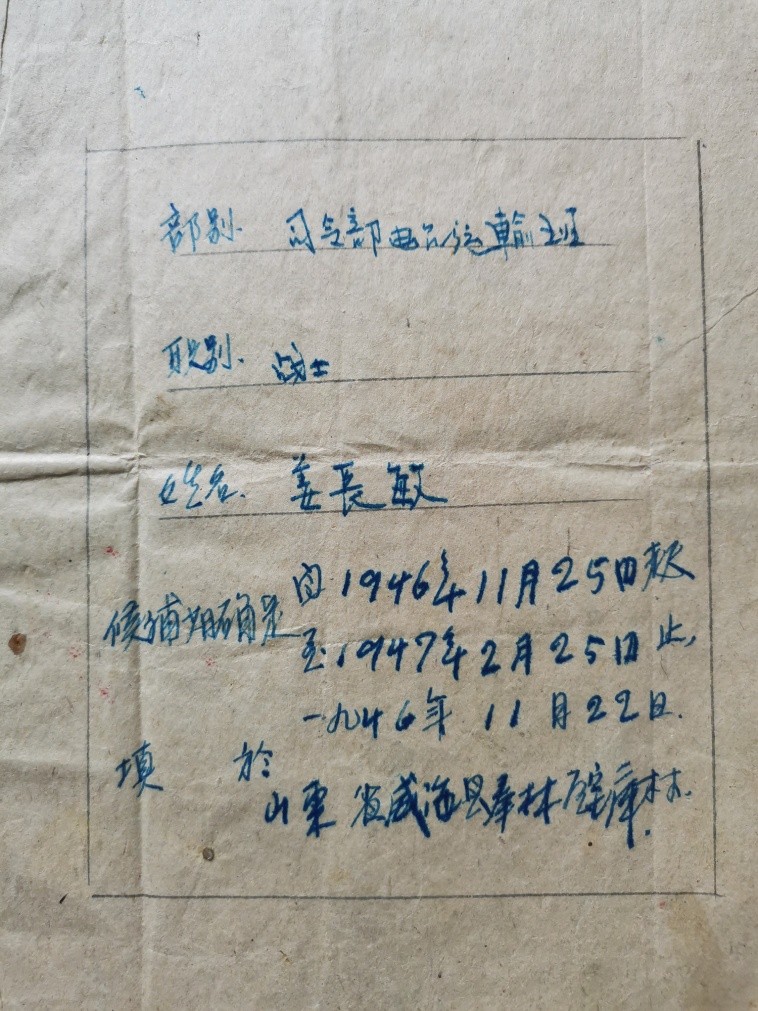 部别. 司令部 运輸班
职别. 战士
姓名. 姜長敏
候補期确定
由1946年11月25日起
至1947年2月25日止,
一九46年11月22日.
填於
山東省威海县